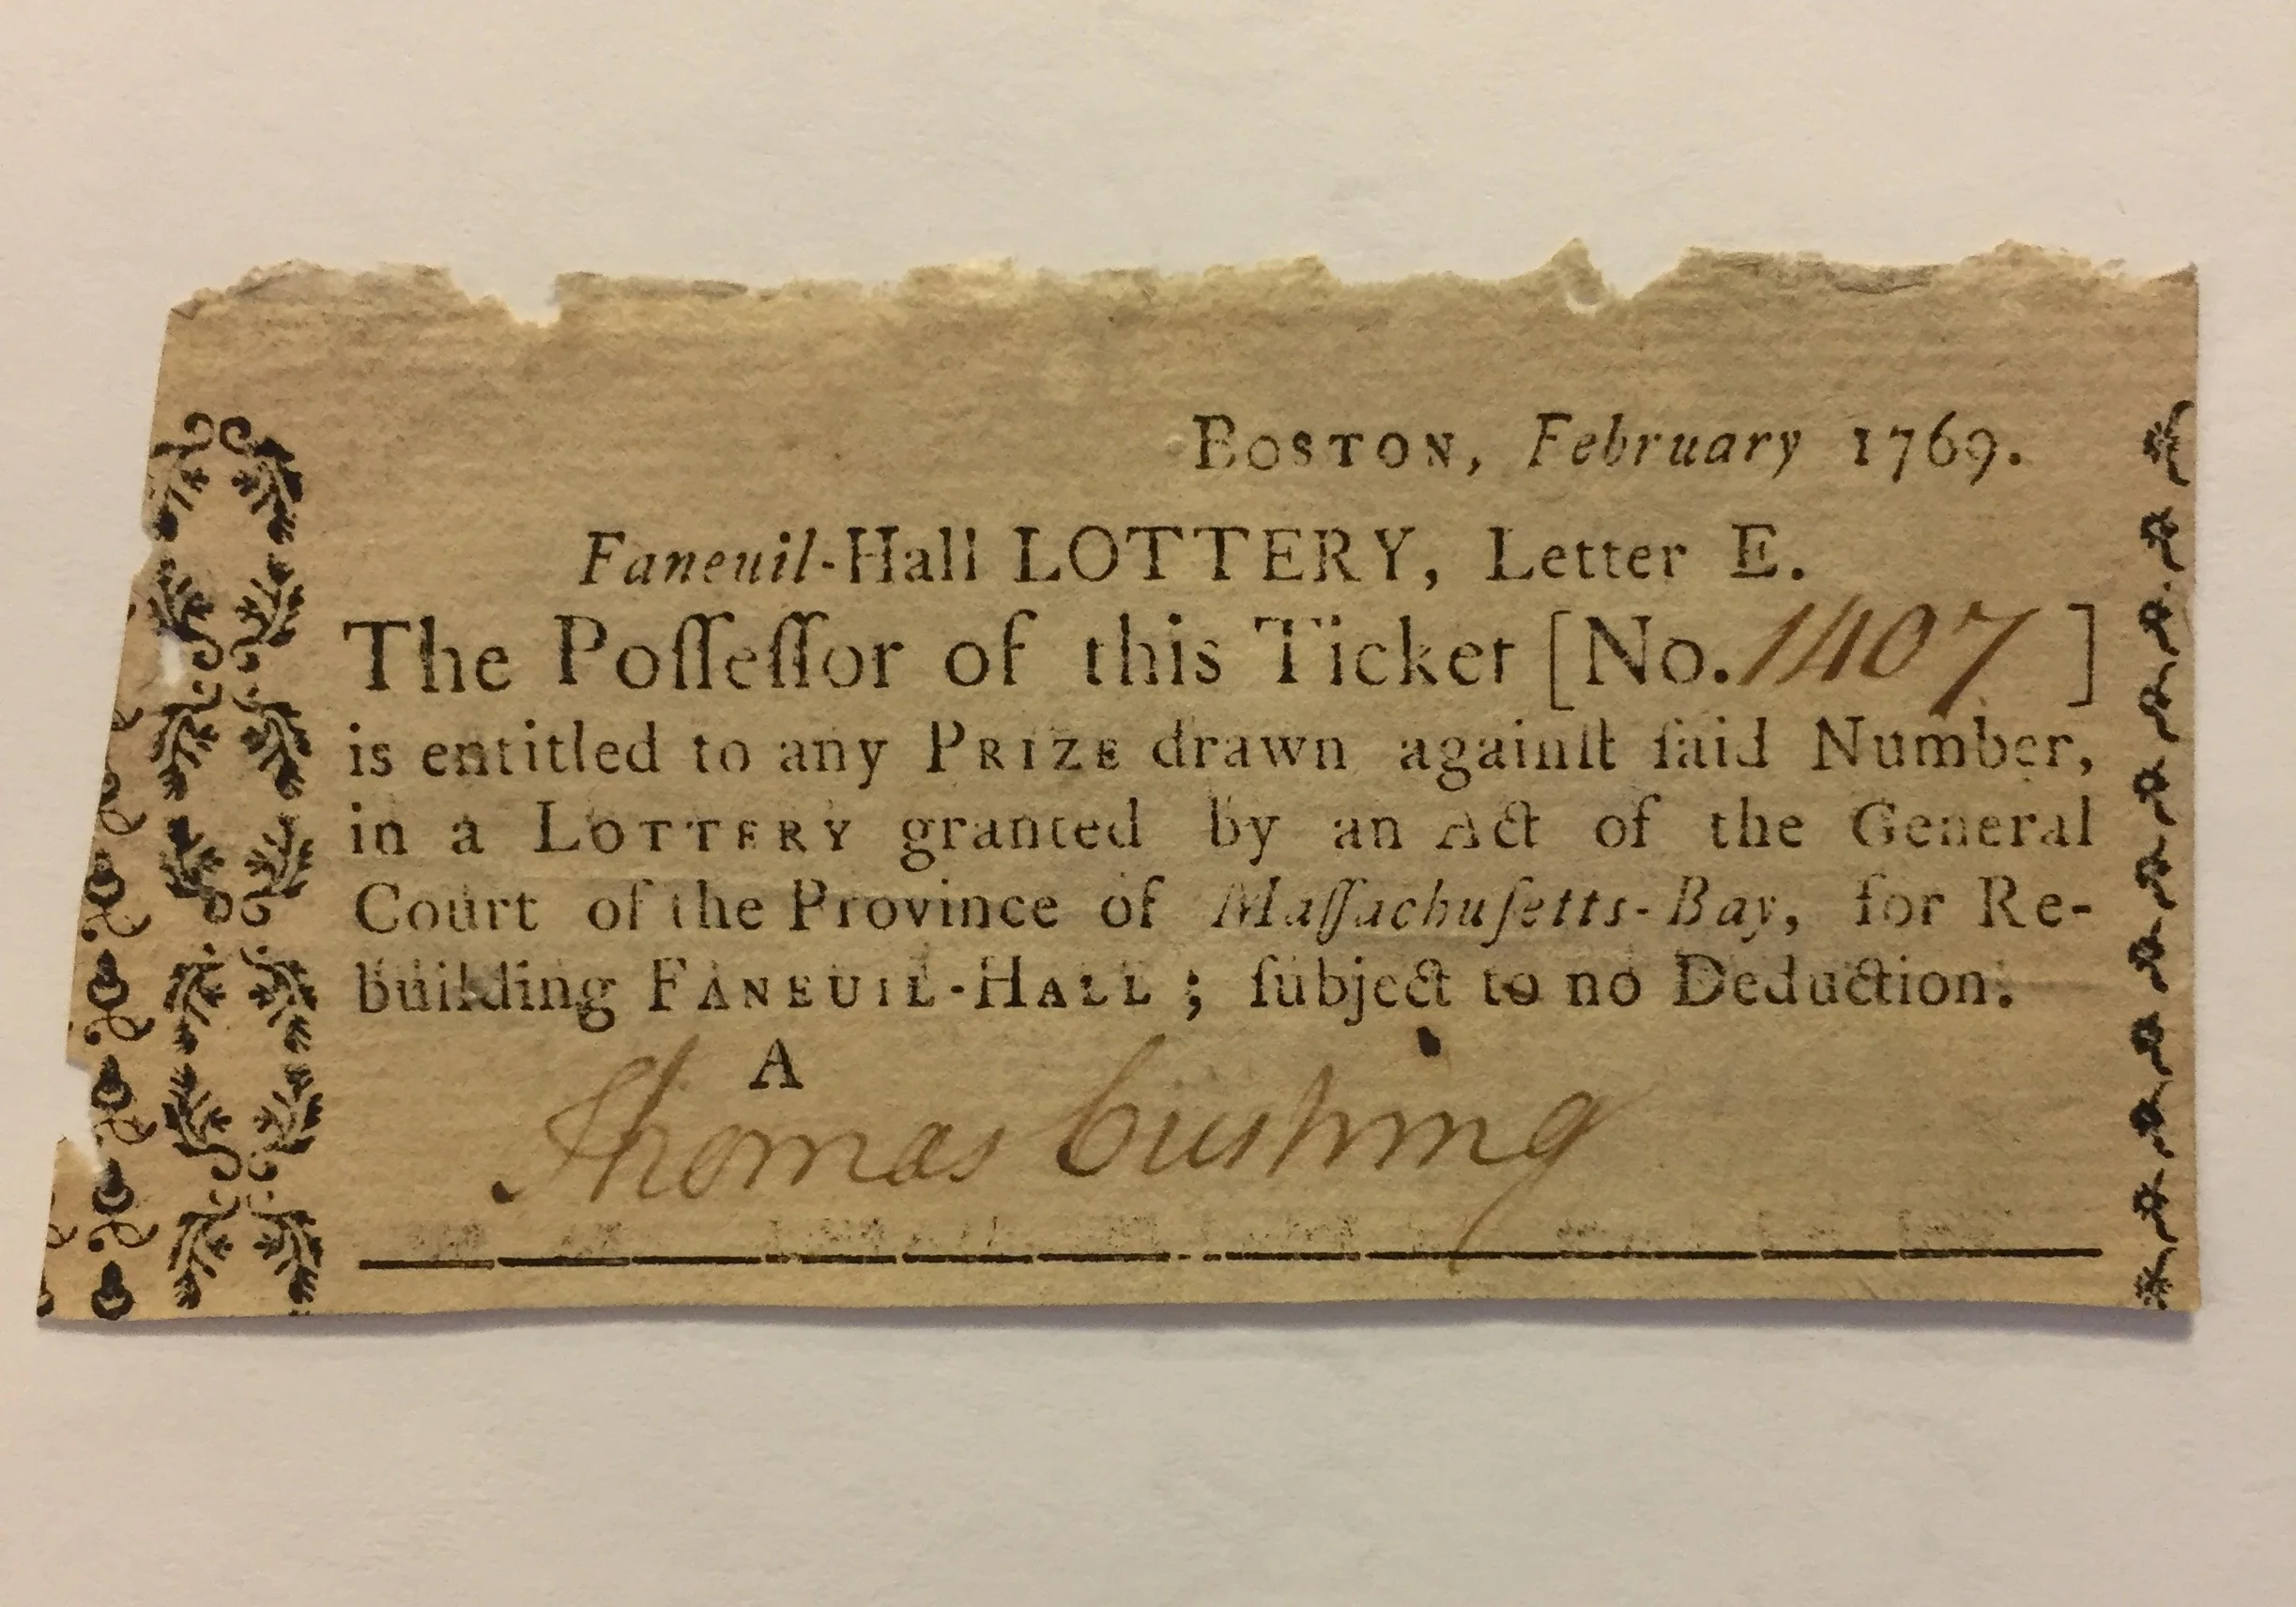 BOSTON, February 1769.
Faneuil-Hall LOTTERY, Letter E.
The Poſſeſſor of this Ticket [No. 1407 ]
is entitled to any PRIZE drawn againſt ſaid Number,
in a LOTTERY granted by an Act of the General
Court of the Province of Maſſachuſetts-Bay, for Re-
building FANEUIL-HALL ; ſubject to no Deduction.
A
Thomas Cushing